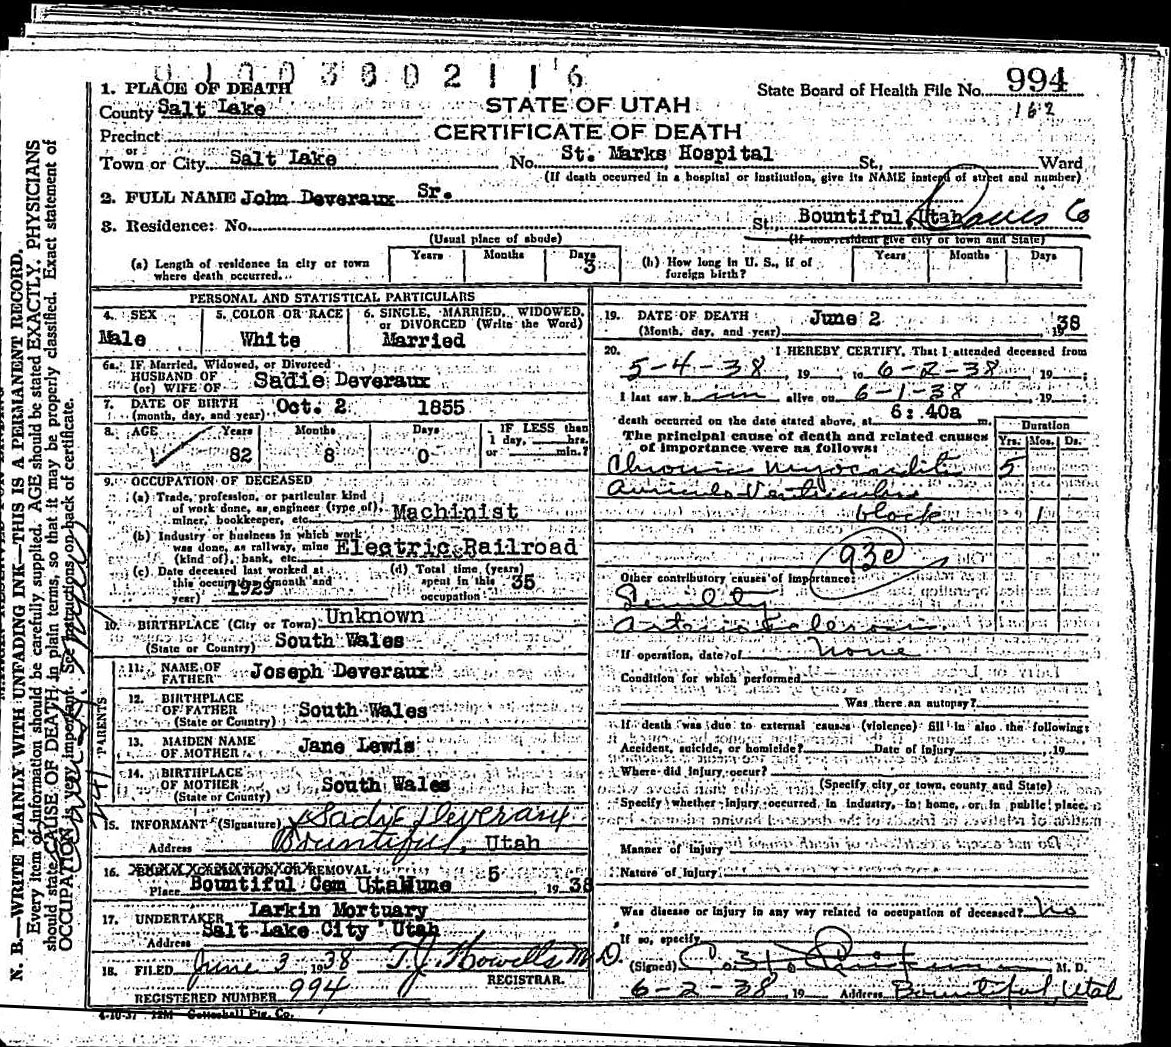 01003802116
1. PLACE OF DEATH
State Board of Health File No. 994
County Salt Lake
STATE OF UTAH
162
Precinct
CERTIFICATE OF DEATH
or
Town or City Salt Lake No. St. Marks Hospital St., Ward
(If death occurred in a hospital or institution, give its NAME instead of street and number)
2. FULL NAME John Deveraux Sr.
3. Residence: No. St., Bountiful, Utah Davis Co
(Usual place of abode) (If non-resident give city or town and State)
(a) Length of residence in city or town where death occurred.. Years Months Days 3
(b) How long in U. S., if of foreign birth? Years Months Days
PERSONAL AND STATISTICAL PARTICULARS
4. SEX Male
5. COLOR OR RACE White
6. SINGLE, MARRIED, WIDOWED, or DIVORCED (Write the Word) Married
6a. IF Married, Widowed, or Divorced
HUSBAND OF
(or) WIFE OF Sadie Deveraux
7. DATE OF BIRTH
(month, day, and year) Oct. 2 1855
8. AGE Years 82 Months 8 Days 0
IF LESS than 1 day, hrs. or min.?
9. OCCUPATION OF DECEASED
(a) Trade, profession, or particular kind
of work done, as engineer (type of),
miner, bookkeeper, etc. Machinist
(b) Industry or business in which work
was done, as railway, mine
(kind of), bank, etc. Electric Railroad
(c) Date deceased last worked at
this occup. (month and
year) 1929
(d) Total time, (years)
spent in this
occupation 35
10. BIRTHPLACE (City or Town) Unknown
(State or Country) South Wales
PARENTS
11. NAME OF FATHER Joseph Deveraux
12. BIRTHPLACE OF FATHER
(State or Country) South Wales
13. MAIDEN NAME OF MOTHER Jane Lewis
14. BIRTHPLACE OF MOTHER
(State or County) South Wales
15. INFORMANT (Signature) Sadye Deveraux
Address Bountiful, Utah
16. BURIAL, CREMATION, OR REMOVAL
Place Bountiful Cem Utah June 5 1938
17. UNDERTAKER Larkin Mortuary
Address Salt Lake City Utah
18. FILED June 3 1938 T.J. Howells M.D.
REGISTRAR.
REGISTERED NUMBER 994
4-10-37 12M Gottschall Ptg. Co.
19. DATE OF DEATH
(Month, day, and year) June 2 1938
20. I HEREBY CERTIFY, That I attended deceased from
5-4-38, 19 to 6-2-38, 19 ;
I last saw h im alive on 6-1-38, 19 ;
death occurred on the date stated above, at 6:40a m.
The principal cause of death and related causes
of importance were as follows:
Duration
Yrs. Mos. Ds.
Chronic Myocarditis 5
Auriculo-Ventricular
block 1
93c
Other contributory causes of importance:
Senility
Arteriosclerosis
If operation, date of None
Condition for which performed
Was there an autopsy?
If death was due to external causes (violence) fill in also the following:
Accident, suicide, or homicide? Date of Injury 19
Where did injury occur?
(Specify city or town, county and State)
Specify whether injury occurred in industry, in home, or in public place.
Manner of injury
Nature of Injury
Was disease or injury in any way related to occupation of deceased? No
If so, specify
(Signed) M. D.
6-2-38, 19 Address Bountiful, Utah
N. B.—WRITE PLAINLY WITH UNFADING INK—THIS IS A PERMANENT RECORD.
Every item of information should be carefully supplied. AGE should be stated EXACTLY. PHYSICIANS
should state CAUSE OF DEATH in plain terms, so that it may be properly classified. Exact statement of
OCCUPATION is very important. See instructions on back of certificate.